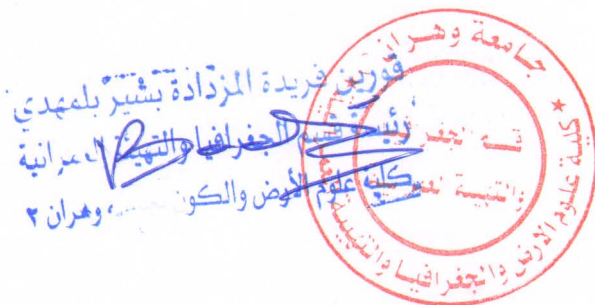 قورين فريدة المزدادة بشير بلمهدي
رئيسة قسم الجغرافيا والتهيئة العمرانية
كلية علوم الأرض والكون وهران ٢
جامعة وهران
كلية علوم الأرض والجغرافيا والتهيئة
قسم الجغرافيا
والتهيئة